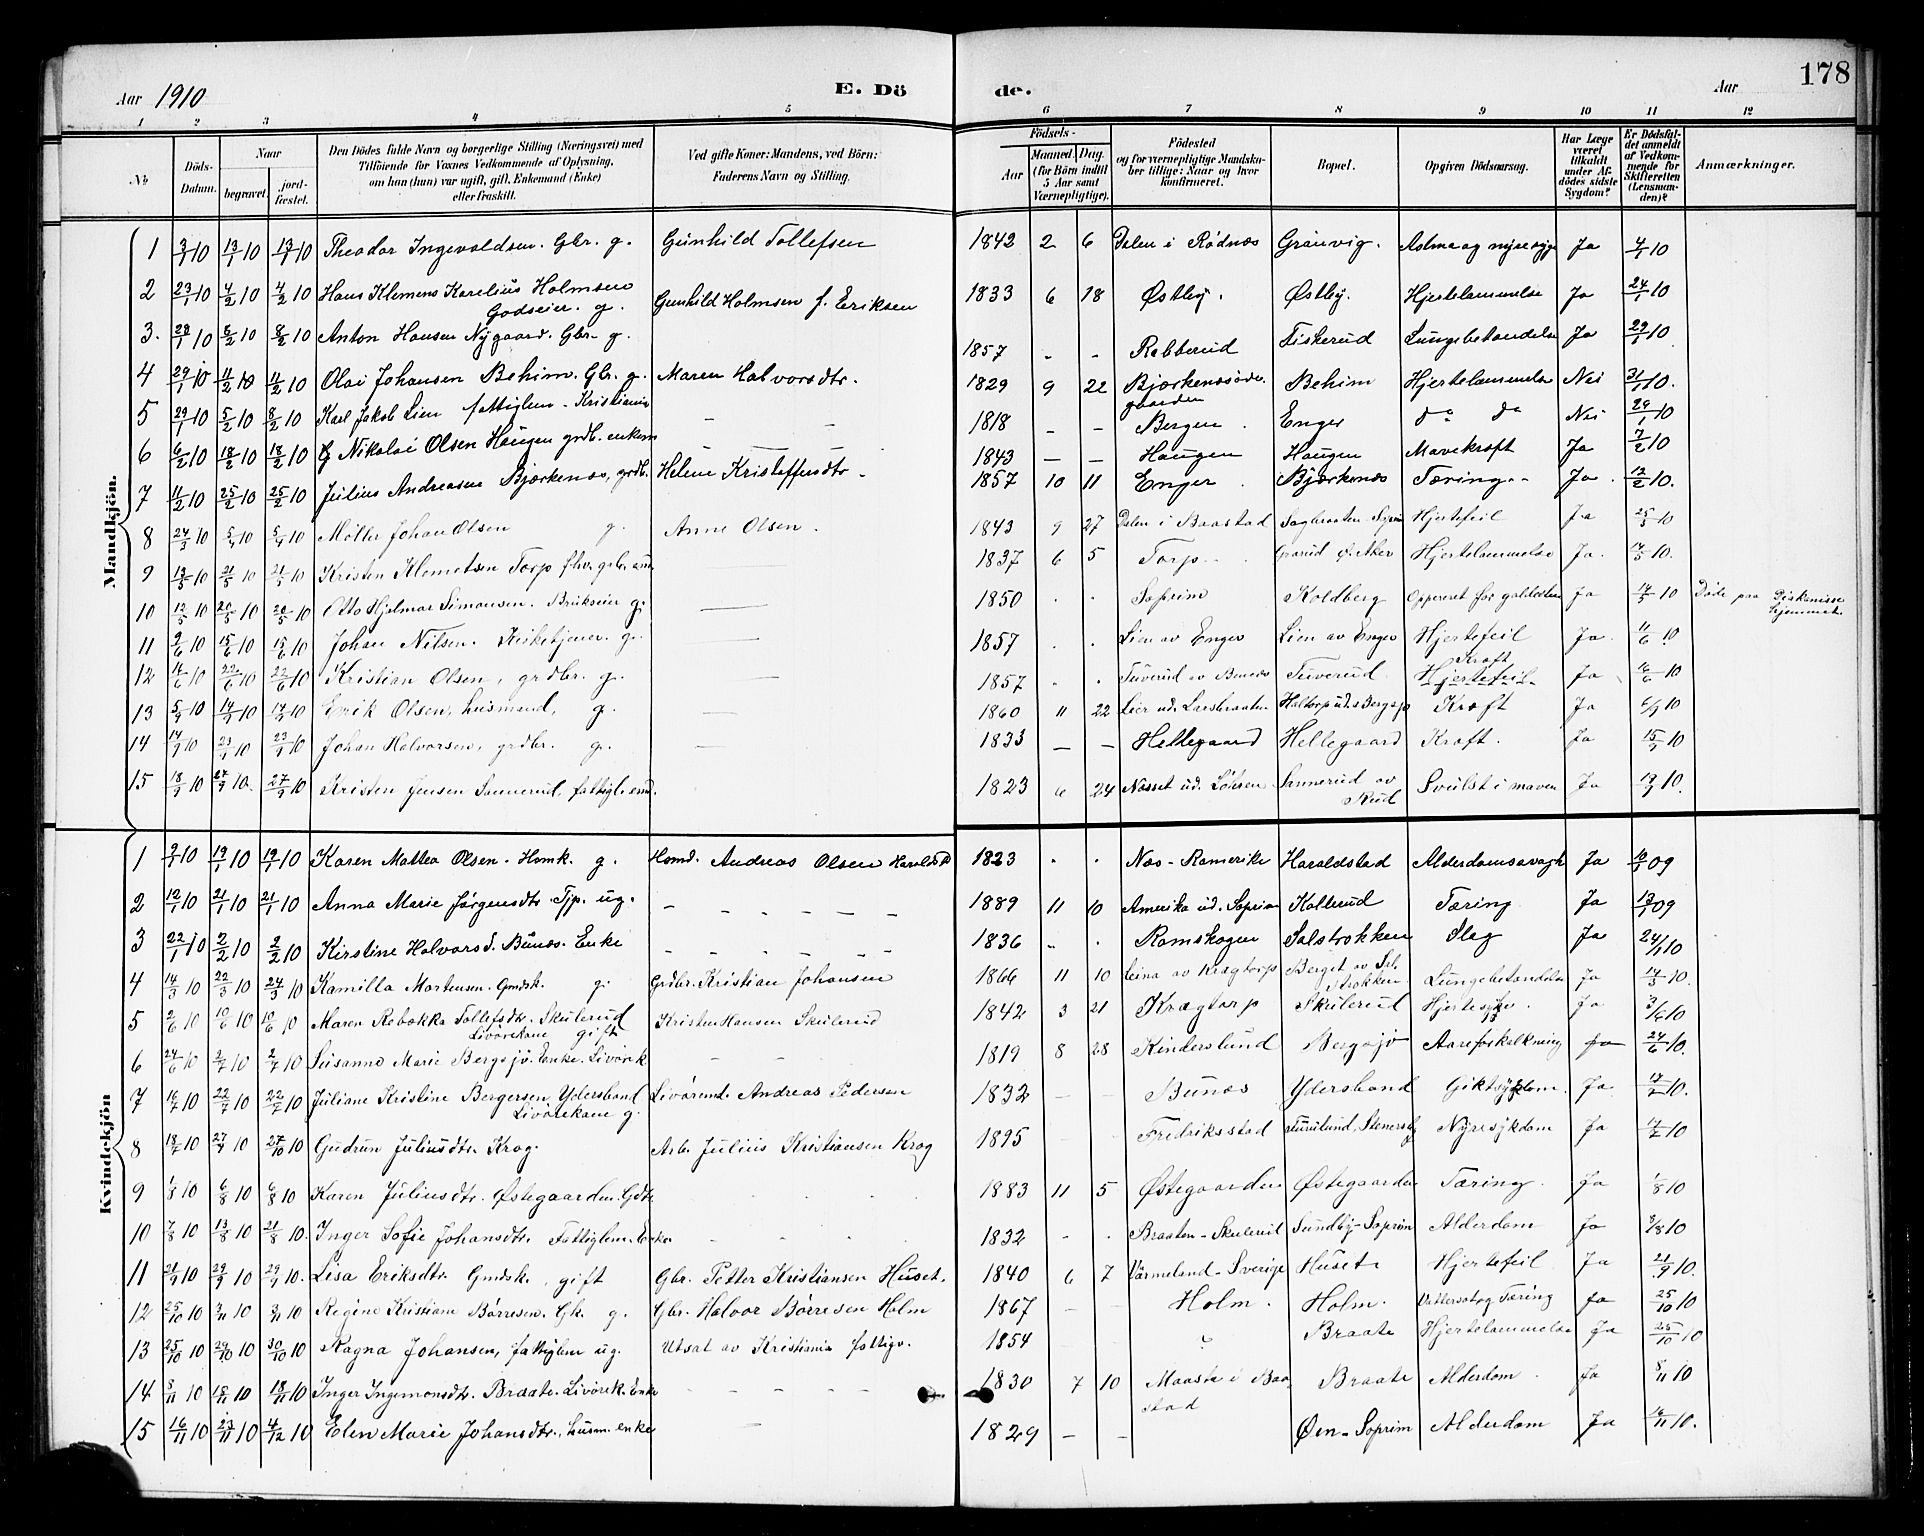 Aar 1910 E. Döde. Aar 178
1 2 3 4 5 6 7 8 9 10 11 12
No Döds-Datum. Naar begravet. jord-fæstet. Den Dödes fulde Navn og borgerlige Stilling (Næringsvei) med Tilföiende for Voxnes Vedkommende af Oplysning, om han (hun) var ugift, gift, Enkemand (Enke) eller fraskilt. Ved gifte Koner: Mandens, ved Börn: Faderens Navn og Stilling. Födsels- Aar Maaned. Dag. (for Börn indtil 5 Aar samt Værnepligtige). Födested og for værnepligtige Mandskaber tillige: Naar og hvor konfirmeret. Bopæl. Opgiven Dödsaarsag. Har Læge været tilkaldt under Afdödes sidste Sygdom? Er Dödsfaldet anmeldt af Vedkommende for Skifteretten (Lensmanden)? Anmærkninger.
Mandkjön.
1 3/1 10 13/1 10 13/1 10 Theodor Ingevaldsen. Gbr. g. Gunhild Tollefsen 1842 2 6 Dalen i Rødnæs Grønvig. Astma og nyresyge Ja 4/1 10
2 23/1 10 4/2 10 4/2 10 Hans Klemens Karelius Holmsen Godseier. g. Gunhild Holmsen f. Eriksen 1833 6 18 Østby. Østby. Hjertelammelse Ja 24/1 10
3. 28/1 10 8/2 10 8/2 10 Anton Hansen Nygaard. Gbr. g. 1857 - - Rebberud Fiskerud Lungebetændelse Ja 29/1 10
4 29/1 10 11/2 10 11/2 10 Olai Johansen Behim. Gbr. g. Maren Halvorsdtr. 1829 9 22 Bjørkenæsødegaarden Behim Hjertelammelse Nei 31/1 10.
5 29/1 10 5/2 10 8/2 10 Karl Jakob Lien fattiglem - Kristiania - - 1818 - - Bergen Enger do do Nei 29/1 10
6 6/2 10 18/2 10 18/2 10 Nikolai Olsen Haugen grdb. enkem - - - 1843 - - Haugen Haugen Mavekræft Ja 7/2 10
7 11/2 10 25/2 10 25/2 10 Julius Andreasen Bjørkenæs, grdb. Helene Kristoffersdtr - 1857 10 11 Enger Bjørkenæs Tæring - Ja 12/2 10.
8 24/3 10 5/4 10 5/4 10 Møller Johan Olsen g. Anne Olsen. 1843 9 27 Dalen i Baastad Sagbraaten Soprim Hjertefeil Ja 25/3 10
9 13/5 10 21/5 10 21/5 10 Kristen Klemetsen Torp fhv. grbr. 1837 6 5 Torp Grarud Ø. Aker Hjertelammelse Ja. 14/5 10.
10 12/5 10 20/5 10 20/5 10 Otto Hjelmar Simonsen. Brukseier g. 1850 . . Soprim Koldberg Oppereret for galdesten Ja 14/5 10 Døde paa Diakonissehjemmet.
11 9/6 10 15/6 10 15/6 10 Johan Nilsen. Kirketjener. g. 1857 . . Lien av Enger Lien av Enger Hjertefeil Ja. 11/6 10
12 14/6 10 22/6 10 22/6 10 Kristian Olsen, grdbr. g. 1857 . . Tuverud av Bunæs Tuverud Kræft Hjertefeil Ja 16/6 10
13 5/9 10 14/9 10 14/9 10 Erik Olsen, husmand, g. 1860 11 22 Lier ud. Larsbraaten Haltorp ud. Bergsjø Kræft Ja 6/9 10
14 14/9 10 23/9 10 23/9 10 Johan Halvorsen, grdbr. g. 1833 - - Hellegaard Hellegaard Kræft. Ja 15/9 10
15 18/9 10 27/9 10. 27/9 10 Kristen Jensen Sannerud, fattigl. 1823 6 24 Næsset ud. Løken Sannerud av Rud Svulst i maven Ja 19/9 10.
Kvindekjön
1 9/1 10 19/1 10 19/1 10 Karen Mattea Olsen. Homk. g. Homd. Andreas Olsen Haralds 1823 . . Næs - Romerike Haraldstad Alderdomsavagh Ja 10/1 09
2 12/1 10 21/1 10 21/1 10 Anna Marie Jørgensdtr. Tjp. ug. - - - - - - 1889 11 10 Amerika ud. Soprim Kollerud Tæring Ja 13/1 09
3 22/1 10 2/2 10 2/2 10 Kirstine Halvorsd. Bunæs. Enke - - - - - 1836 . . Romskogen Salstrokken Slag Ja 24/1 10
4 14/3 10 22/3 10 24/3 10 Kamilla Mortensen. Gmdsk. g. Grdbr. Kristian Johansen 1866 11 10 av Krægtorp Berget av Salstrokken Lungebetændelse Ja 14/3 10.
5 2/6 10 10/6 10 10/6 10 Maren Rebekka Tollefsdtr. Skulerud Livørekane gift Kristen Hansen Skulerud 1842 3 21 Krægtorp Skulerud Ja 3/6 10
6 24/6 10 2/7 10 2/7 10 Susanne Marie Bergsjø Enke. Livørek - - 1819 8 28 Kinderslund Bergsjø Aareforkalkning Ja 24/6 10.
7 16/7 10 22/7 10 22/7 10 Juliane Kristine Bergersen Ydersbond Livørekane g. Livøremd. Andreas Pedersen 1832 - - Bunæs Ydersbond Giktsygdom. Ja. 17/7 10.
8 18/7 10 27/7 10 27/10 10 Gudrun Juliusdtr. Krog. Arb. Julius Kristiansen Krog 1895 - - Fredriksstad Furulund, Stenersby Nyresykdom Ja 10
9 1/8 10 6/8 10 6/8 10 Karen Juliusdtr. Østegaarden. Gdtr . . . 1883 11 5 Østegaarden Østegaarden Tæring. Ja 1/8 10
10 7/8 10 13/8 10 21/8 10. Inger Sofie Johansdtr. Fattiglem. Enke - - - 1832 - . Braaten - Skulerud Sundby - Soprim Alderdom Ja 8/8 10
11 21/9 10 29/9 10 29/9 10. Lisa Eriksdtr. Gmdsk., gift Gbr. Petter Kristiansen Huset. 1840 6 7 Värmeland - Sverige Huset. Hjertefeil Ja 21/9 10.
12 25/10 10 3/11 10 3/11 10 Regine Kristiane Børresen. Gk. g. Gbr. Halvor Børresen Holm 1867 - - Holm. Holm. Vattersot og Tæring Ja 25/10 10
13 25/10 10 29/10 10 30/10 10 Ragna Johansen, fattiglem ug. Utsat av Kristiania fattigv. 1854 ? Braate Hjertelammelse Ja 25/10 10
14 8/11 10 18/11 10 18/11 10 Inger Ingemonsdtr. Braate. Livørek. Enke - - - - - 1830 7 10 Maaste i Baastad Braate Alderdom. Ja 8/11 10
15 16/11 10 23/11 10 4/12 10 Elen Marie Johansdtr., husm. enke - 1829 - - Øen - Soprim Alderdom Ja 16/11 10.